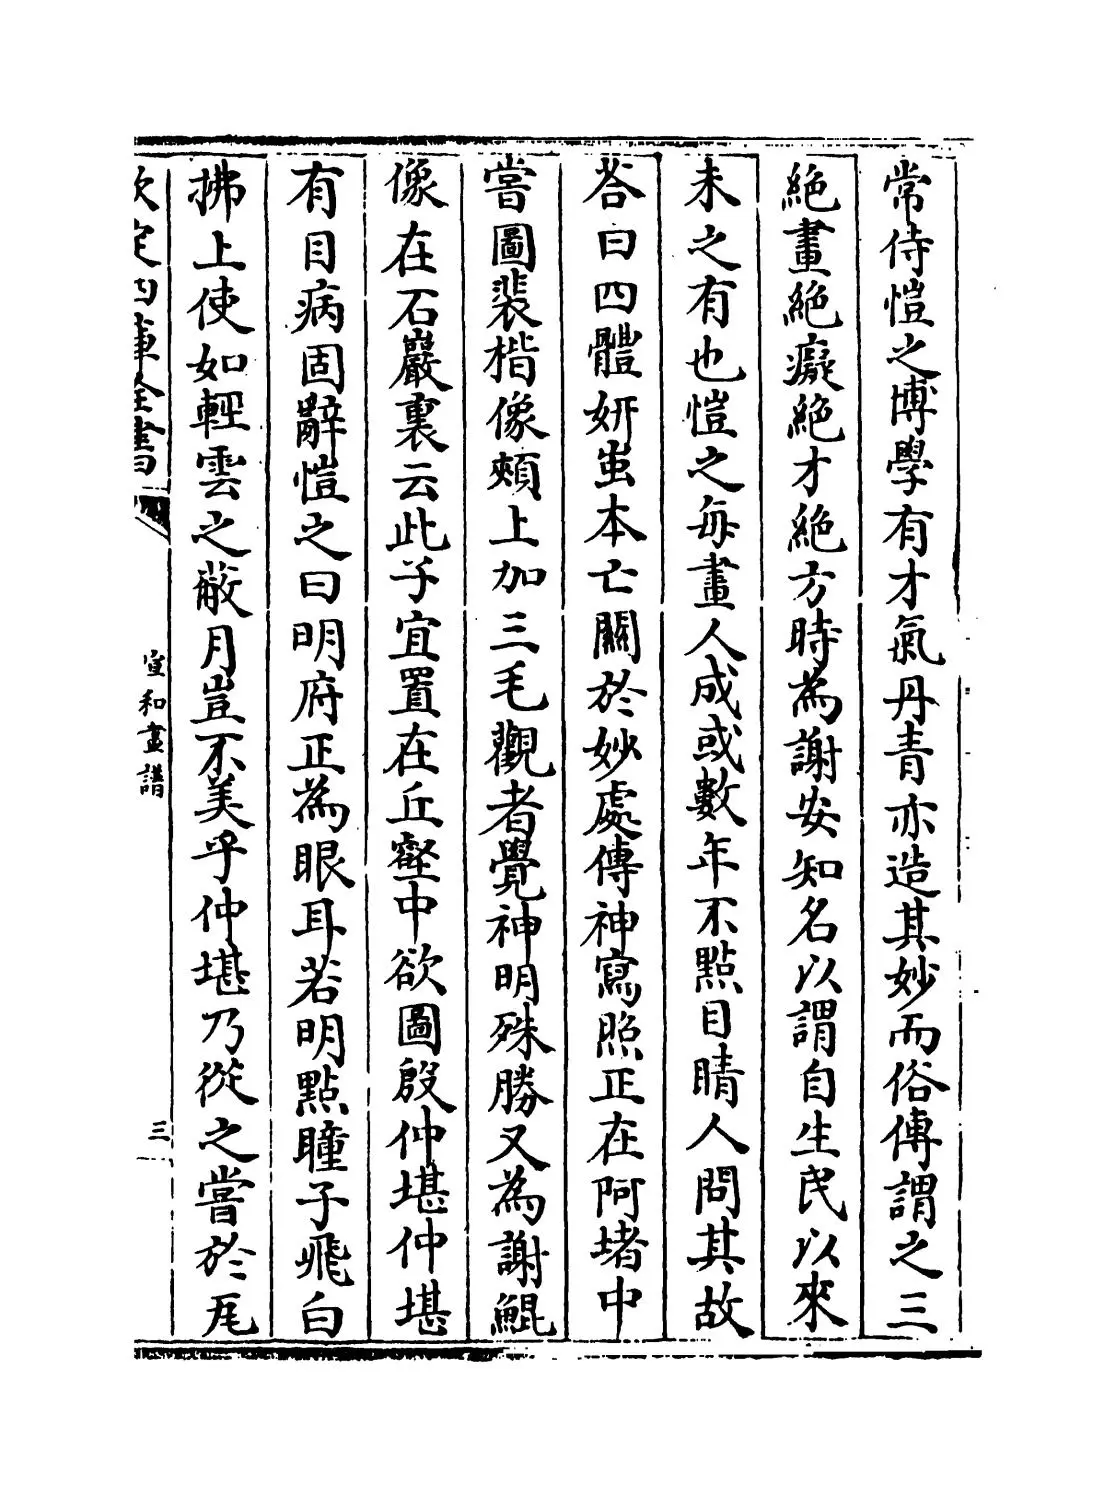 常侍愷之博學有才氣丹青亦造其妙而俗傳謂之三
絶畫絶癡絶才絶方時為謝安知名以謂自生民以來
未之有也愷之每畫人成或數年不點目睛人問其故
荅曰四體妍蚩本亡關於妙處傳神寫照正在阿堵中
嘗圖裴楷像頰上加三毛觀者覺神明殊勝又為謝鯤
像在石巖裏云此子宜置在丘壑中欲圖殷仲堪仲堪
有目病固辭愷之曰明府正為眼耳若明點瞳子飛白
拂上使如輕雲之蔽月豈不美乎仲堪乃從之嘗於瓦
欽定四庫全書
宣和畫譜
三